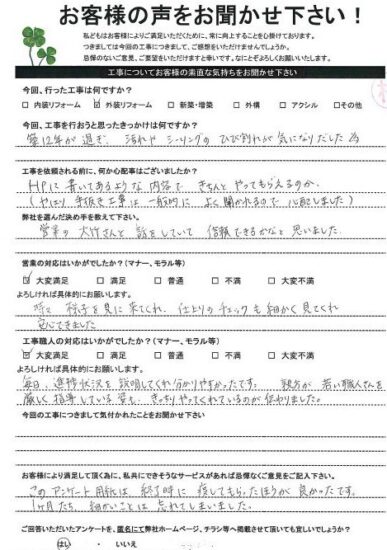 お客様の声をお聞かせ下さい！
私どもはお客様によりご満足いただくために、常に向上することを心掛けております。
つきましては今回の工事につきまして、ご感想をいただけませんでしょうか。
忌憚のないご意見、ご要望をいただけますと幸いです。なにとぞよろしくお願いいたします。
工事についてお客様の素直な気持ちをお聞かせ下さい
今回、行った工事は何ですか？
□ 内装リフォーム ☑ 外装リフォーム □ 新築・増築 □ 外構 □ アクシル □その他
今回、工事を行おうと思ったきっかけは何ですか？
築12年が過ぎ、汚れや シーリングの ひび割れが 気になりだした為
工事を依頼される前に、何か心配事はございましたか？
HPに 書いてあるような 内容で きちんと やってもらえるのか。
(やはり 手抜き工事は 一般的に よく聞かれるので 心配しました)
弊社を選んだ決め手を教えて下さい。
営業の 大竹さんと 話をしていて 信頼できるかなと 思いました。
営業の対応はいかがでしたか？（マナー、モラル等）
☑ 大変満足 □ 満足 □ 普通 □ 不満 □ 大変不満
よろしければ具体的にお願いします。
時々 様子を見に 来てくれ、仕上りの チェックも 細かく 見てくれ
安心できました
工事職人の対応はいかがでしたか？（マナー、モラル等）
☑ 大変満足 □ 満足 □ 普通 □ 不満 □ 大変不満
よろしければ具体的にお願いします。
毎日、進捗状況を 説明してくれ 分かりやすかったです。 親方が 若い職人さんを
厳しく 指導している 姿も、きっちりやってくれているのが 伝わりました。
今回の工事につきまして気付かれたことをお聞かせ下さい
お客様により満足して頂く為に、私共にできそうなサービスがあれば忌憚なくご意見をご記入下さい。
このアンケート用紙は 終了時に 渡してもらったほうが 良かったです。
1ヶ月たち、細かいことは 忘れてしまいました。
ご回答いただいたアンケートを、匿名にて弊社ホームページ、チラシ等へ掲載させて頂いても宜しいでしょうか？
はい ・ いいえ